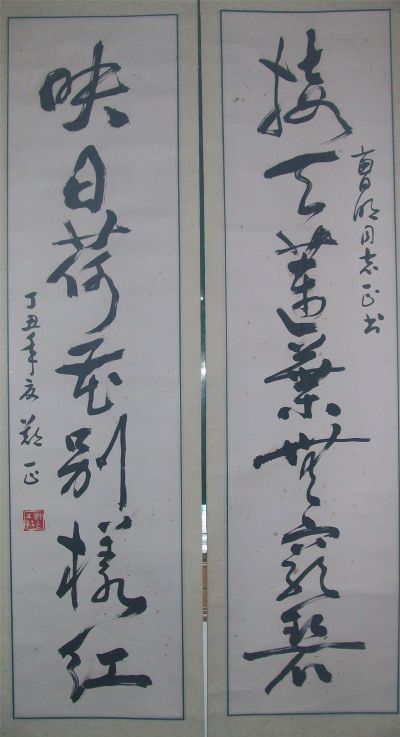 接天蓮葉無窮碧
曹明同志正书
映日荷花别樣红
丁丑年夏 郑正